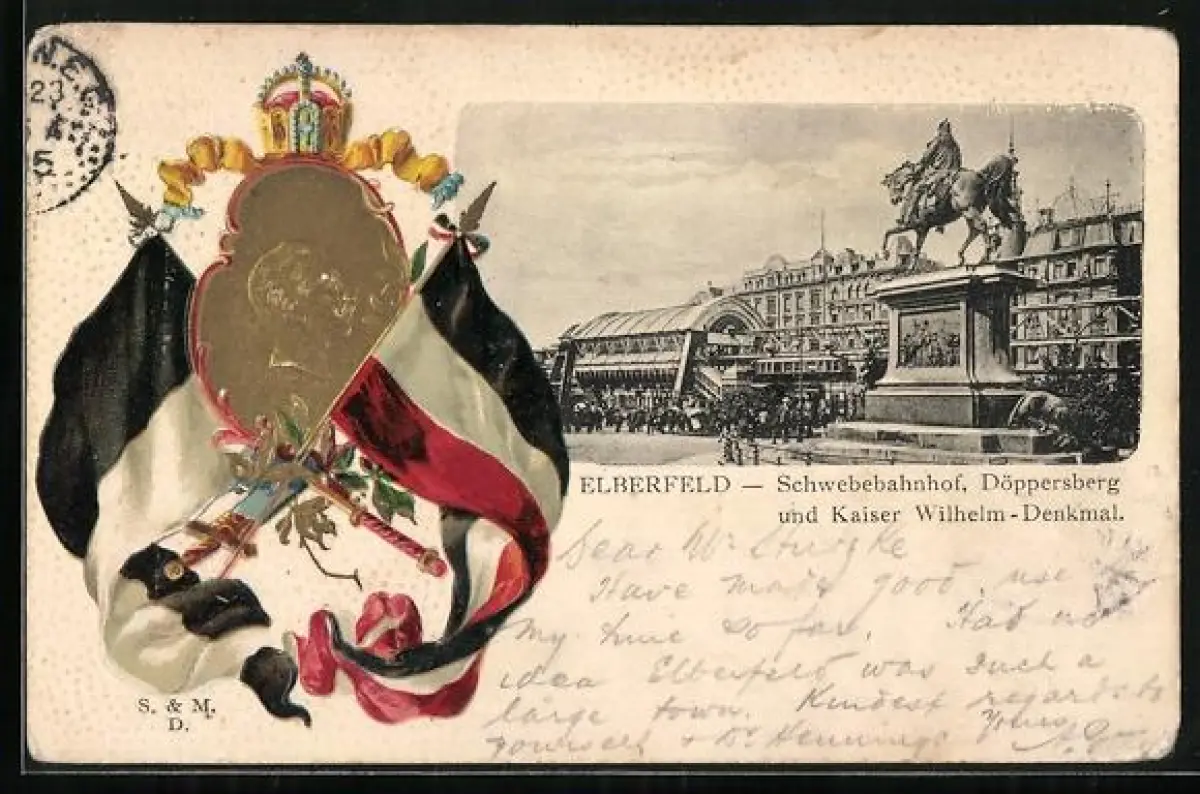 NES
23
4
5
ELBERFELD — Schwebebahnhof, Döppersberg
und Kaiser Wilhelm-Denkmal.
Dear Mr
Have made good use
My time so far. Had no
idea Elberfeld was such a
large town. Kindest regards to
yourself + Dr Hennings Yours
S. & M.
D.